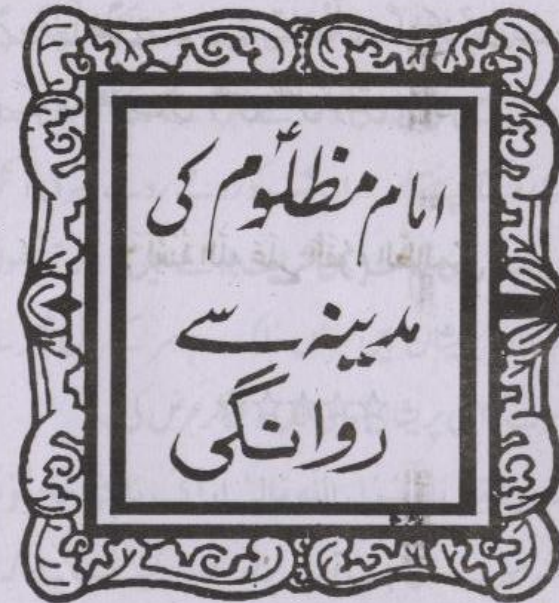 امام مظلومؑ کی
مدینہ سے
روانگی